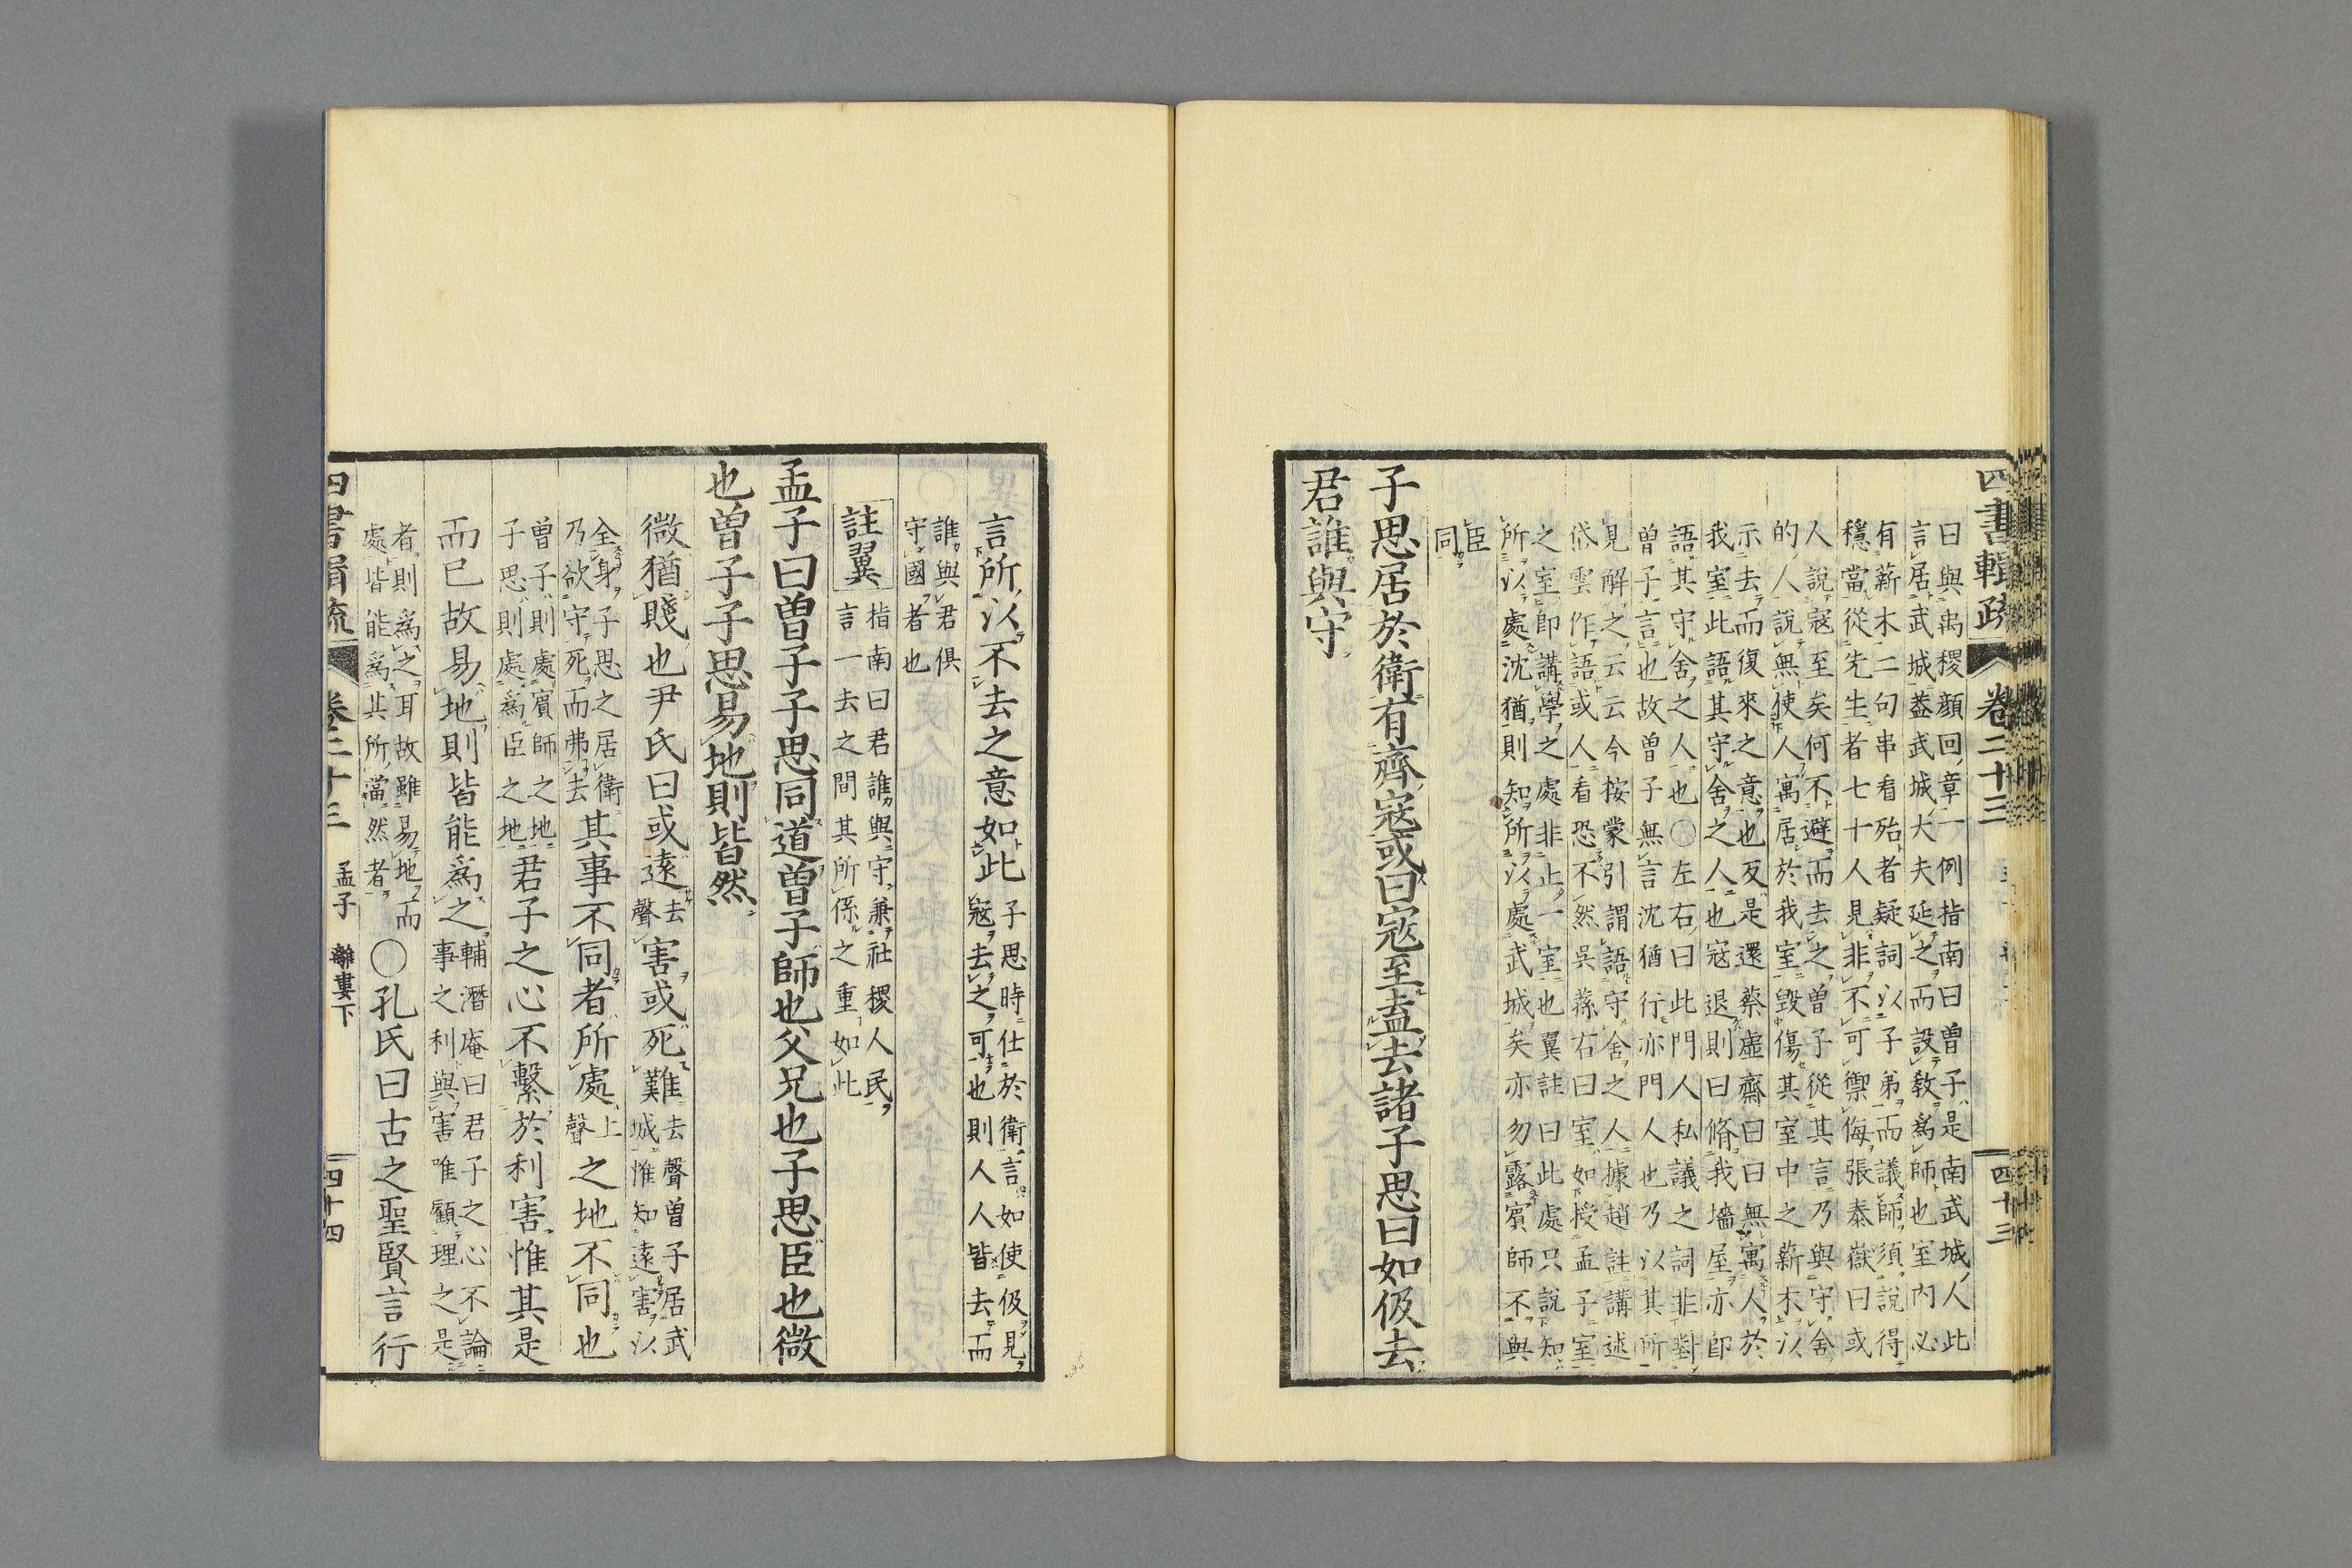 四書輯疏 卷二十三 四十三
曰與禹稷顔回章一例指南曰曾子是南武城人此
言居武城蓋武城大夫延之而設敎爲師也室内必
有薪木二句串看殆者疑詞以子弟而議師須說得
穩當從先生者七十人見非不可禦侮張泰嶽曰或
人說寇至矣何不避而去之曾子從其言乃與守舍
的人說無使人寓居於我室毀傷其室中之薪木以
示去而復來之意也反是還蔡虛齋曰曰無寓人於
我室此語其守舍之人也寇退則曰脩我墻屋亦卽
語其守舍之人也○左右曰此門人私議之詞非對
曾子言也故曾子無言沈猶行亦門人也乃以其所
見解之云云今按蒙引謂語守舍之人據趙註講述
岱雲作語或人看恐不然吳蓀右曰室如授孟子室
之室卽講學之處非止一室也翼註曰此處只說知
所以處沈猶則知所以處武城矣亦勿露賓師不與
臣
同
子思居於衛有齊寇或曰寇至盍去諸子思曰如伋去
君誰與守
言所以不去之意如此
子思時仕於衛言如使伋見
寇去之可也則人人皆去而
誰與君俱
守國者也
註翼
指南曰君誰與守兼社稷人民
言一去之間其所係之重如此
孟子曰曾子子思同道曾子師也父兄也子思臣也微
也曾子子思易地則皆然
微猶賤也尹氏曰或遠
去
聲
害或死難
去聲曾子居武
城惟知遠害以
全身子思之居衛
乃欲守死而弗去
其事不同者所處
上
聲
之地不同也
曾子則處賓師之地
子思則處爲臣之地
君子之心不繫於利害惟其是
而已故易地則皆能爲之
輔潛庵曰君子之心不論
事之利與害唯顧理之是
者則爲之耳故雖易地而
處皆能爲其所當然者
○孔氏曰古之聖賢言行
四書輯疏 卷二十三 孟子 離婁下 四十四